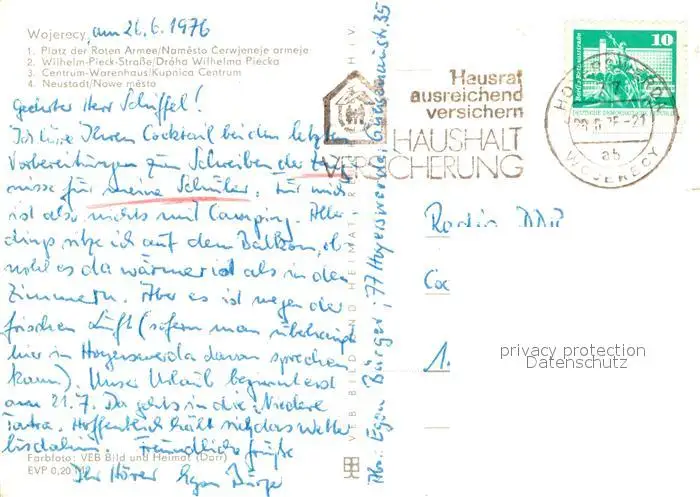 Wojerecy, am 26.6.1976
1. Platz der Roten Armee/Naměsto Čerwjeneje armeje
2. Wilhelm-Pieck-Straße/Dróha Wilhelma Piecka
3. Centrum-Warenhaus/Kupnica Centrum
4. Neustadt/Nowe město
Geehrter Herr Schiffel!
Ich höre Ihren Cocktail bei den letzten
Vorbereitungen zum Schreiben der Zeug-
nisse für meine Schüler. Für mich
ist also nichts mit Camping. Aller-
dings sitze ich auf dem Balkon, ob-
wohl es da wärmer ist als in den
Zimmern. Aber es ist wegen der
frischen Luft (sofern man überhaupt
hier in Hoyerswerda davon sprechen
kann). Unser Urlaub beginnt erst
am 21.7. Da gehts in die Niedere
Tatra. Hoffentlich hält sich das Wetter
bis dahin. Freundliche Grüße
Farbfoto: VEB Bild und Heimat (Darr)
Ihr Hörer Egon Bürger
EVP 0,20 M
VEB BILD UND HEIMAT
Abs.: Egon Bürger, 77 Hoyerswerda, 35
Hausrat
ausreichend
versichern
HAUSHALT
VERSICHERUNG
HOYERSWERDA
ab
WOJERECY
10
Radio DDR
Coc
1.
privacy protection
Datenschutz